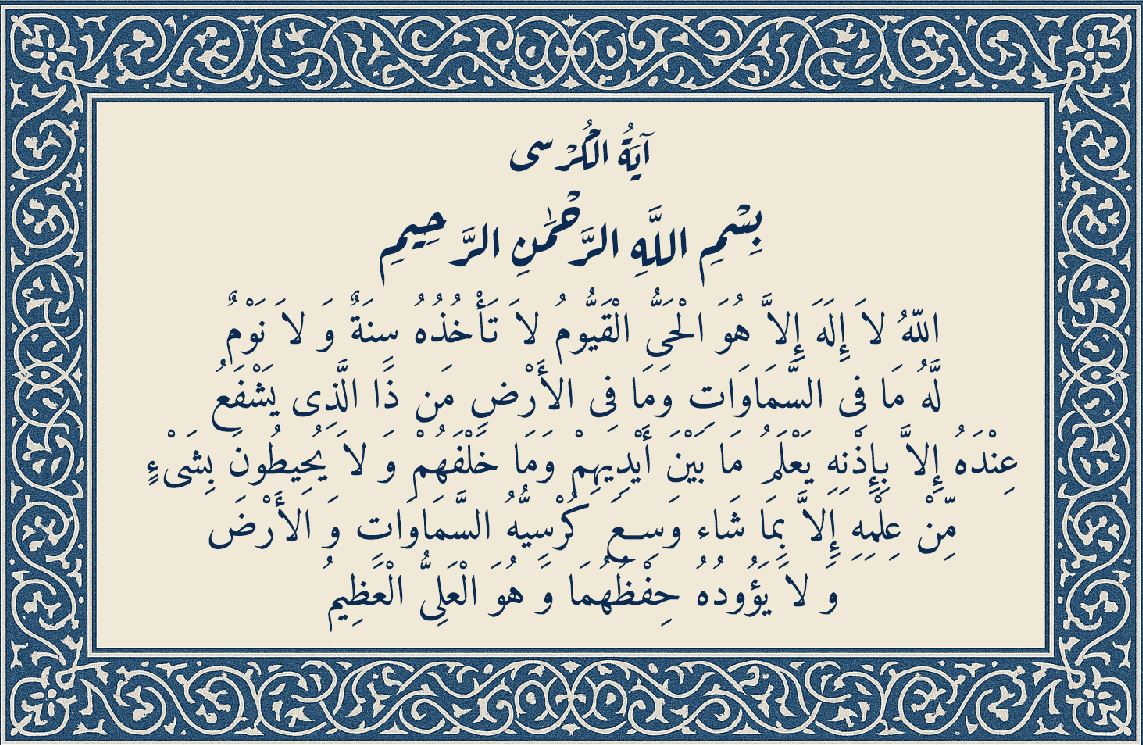 آيَةُ الكُرْسى
بِسْمِ اللَّهِ الرَّحْمَٰنِ الرَّحِيمِ
اللّهُ لاَ إِلَهَ إِلاَّ هُوَ الْحَىُّ الْقَيُّومُ لاَ تَأْخُذُهُ سِنَةٌ وَ لاَ نَوْمٌ
لَّهُ مَا فِى السَّمَاوَاتِ وَمَا فِى الأَرْضِ مَن ذَا الَّذِى يَشْفَعُ
عِنْدَهُ إِلاَّ بِإِذْنِهِ يَعْلَمُ مَا بَيْنَ أَيْدِيهِمْ وَمَا خَلْفَهُمْ وَ لاَ يُحِيطُونَ بِشَىْءٍ
مِّنْ عِلْمِهِ إِلاَّ بِمَا شَاء وَسِعَ كُرْسِيُّهُ السَّمَاوَاتِ وَ الأَرْضَ
وَ لاَ يَؤُودُهُ حِفْظُهُمَا وَ هُوَ الْعَلِىُّ الْعَظِيمُ